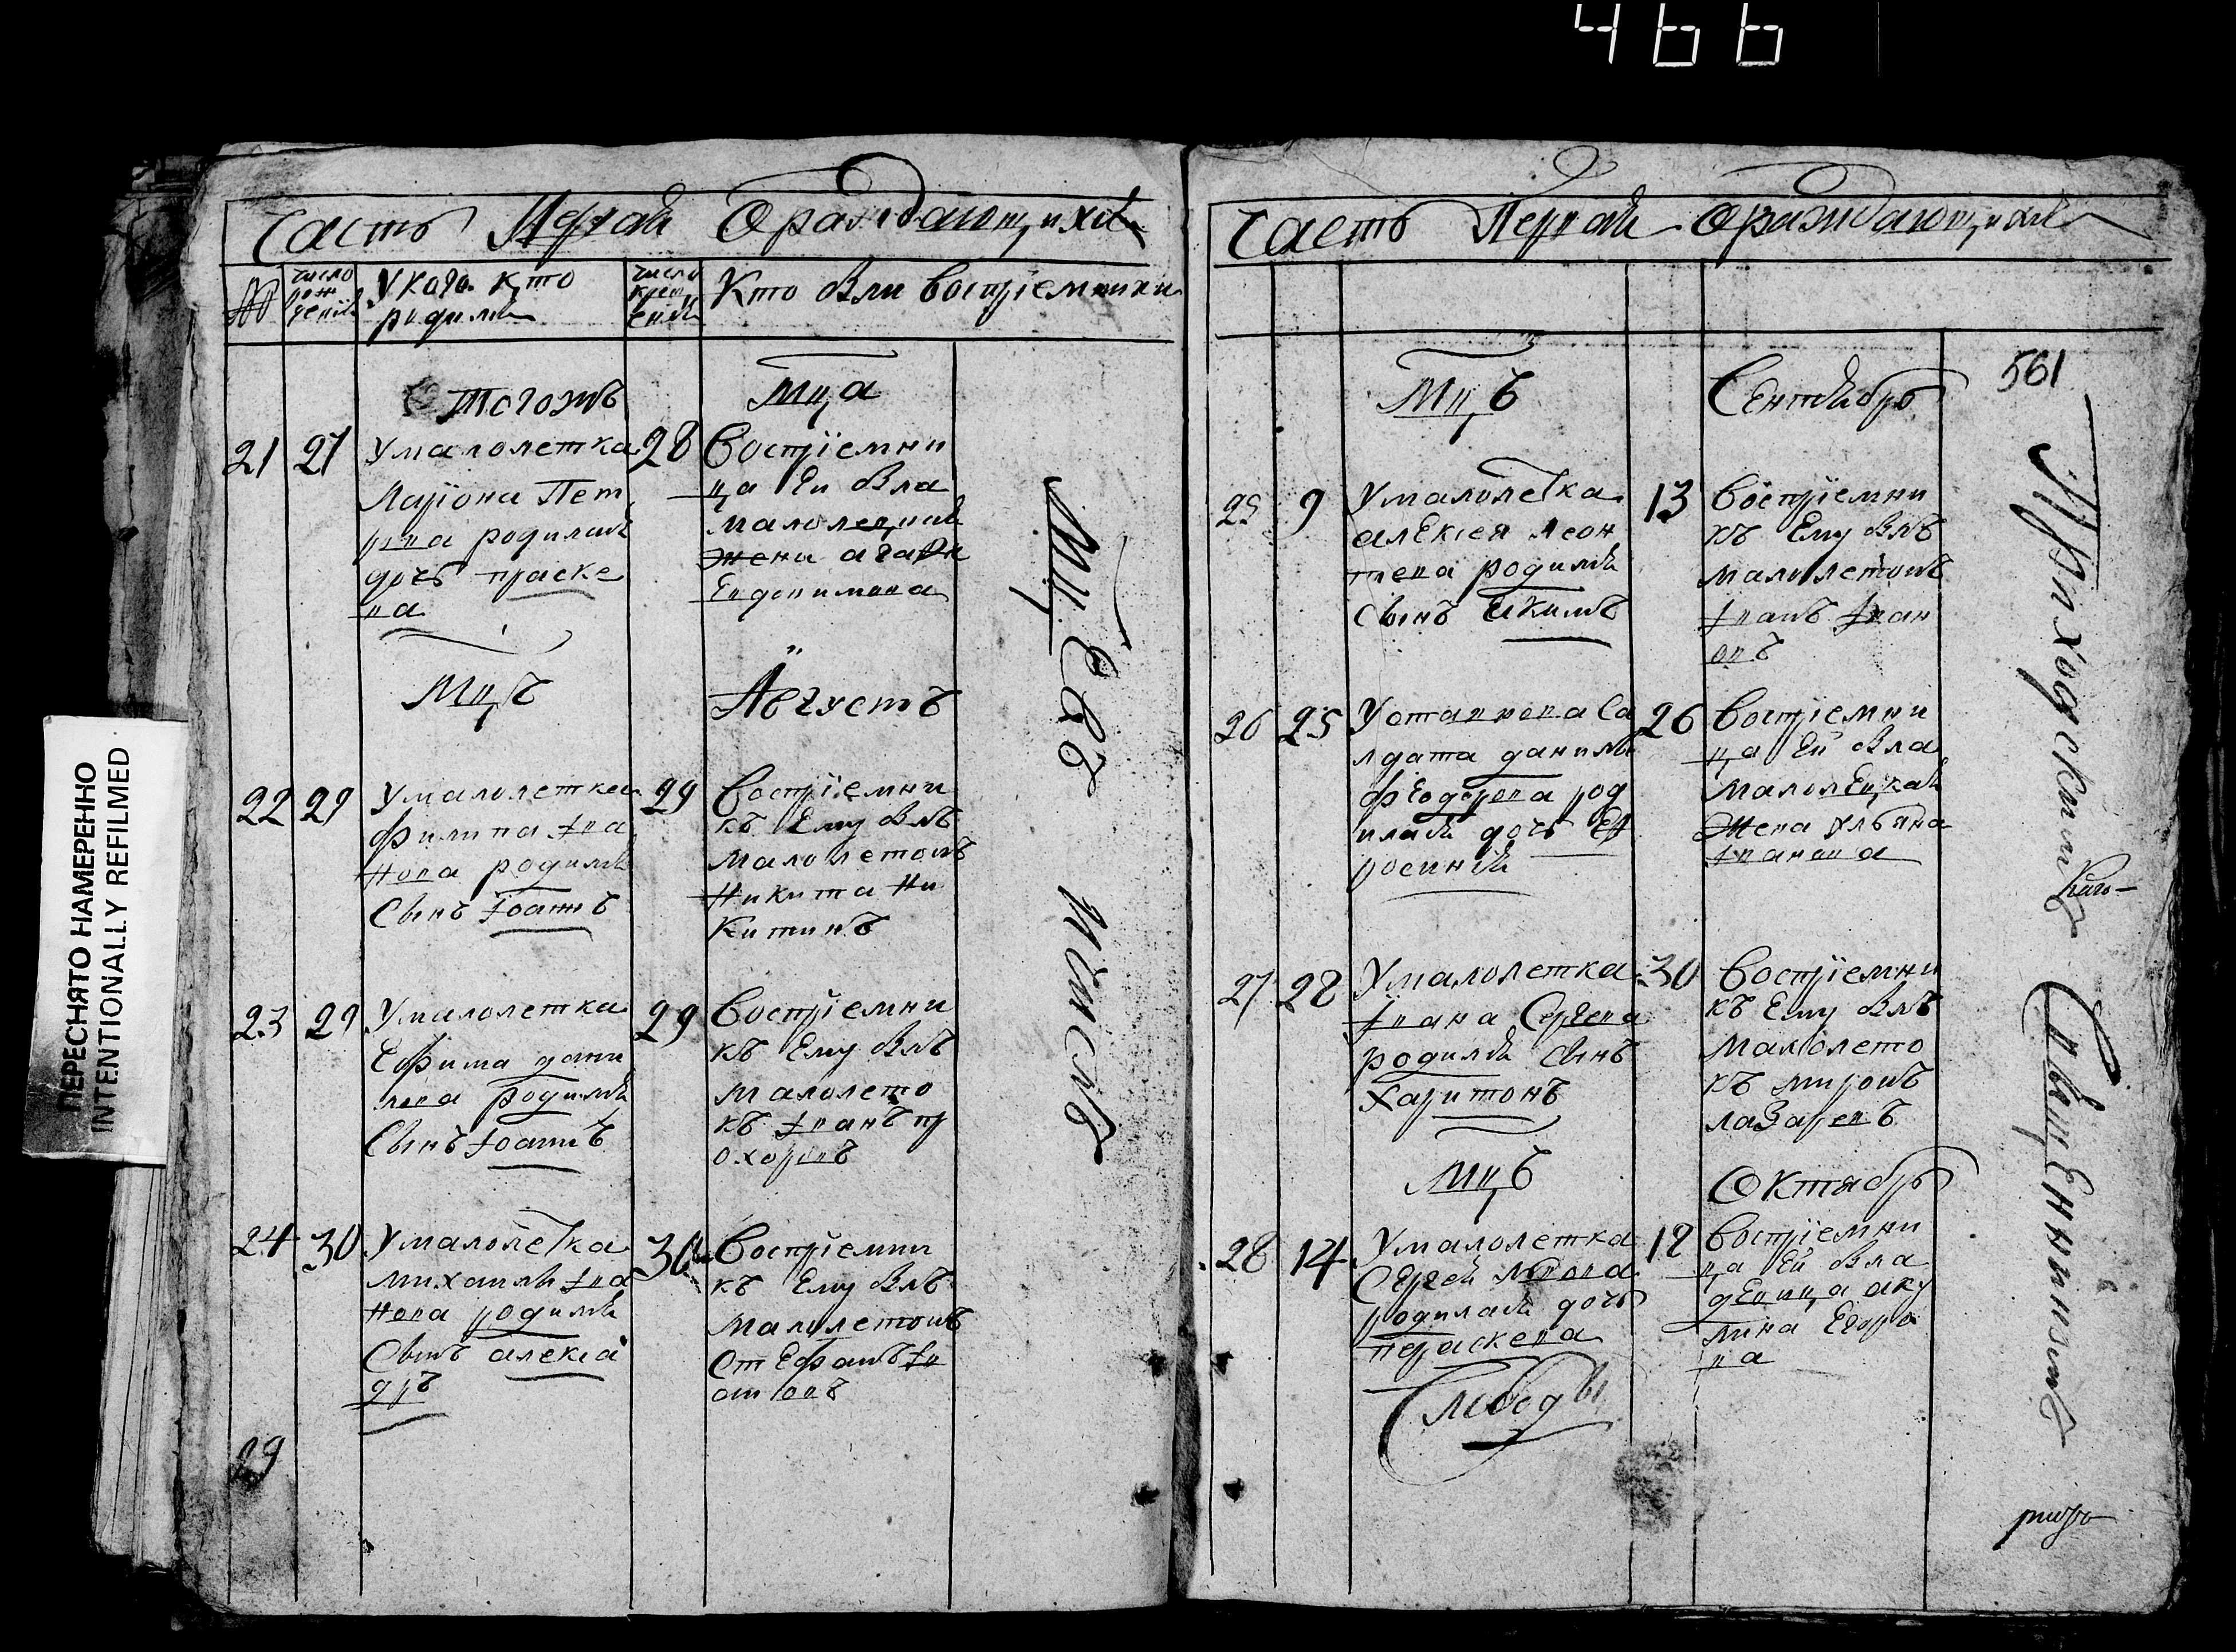 466
ПЕРЕСНЯТО НАМЕРЕННО
INTENTIONALLY REFILMED
Часть Первая О раждающихся
№
число рож денія
У кого кто родился
число креще нія
Кто был восприемники
Тогожъ мца
21 27
У малолетка
Лариона Пет
рова родилась
дочь праске
ва
28
Восприемни
ца Ей Была
малолецкая
жена агафя
Евдокимова
Мцъ Августъ
22 29
У малолетка
филипа Iва
нова родился
Сынъ Iоаннъ
29
Восприемни
къ Ему Былъ
малолетокъ
Никита Ни
китинъ
23 29
У малолетка
Ефима дани
лова родился
Сынъ Iоаннъ
29
Восприемни
къ Ему Былъ
малолето
къ Iванъ пр
охоровъ
24 30
У малолетка
михаила Iва
нова родился
Сынъ алекса
дръ
30
Восприемни
къ Ему Былъ
малолетокъ
Стефанъ Iв
ановъ
29
Часть Первая О раждающихся
561
Мцъ Сентябрь
25 9
У малолетка
алексея леон
тева родился
Сынъ Екимъ
13
Восприемни
къ Ему Былъ
малолетокъ
Iванъ Iван
овъ
26 25
У отавнова Са
лдата данила
феодорова род
илась дочь Еф
росиния
26
Восприемни
ца Ей Была
малолецкая
жена ульяна
Iванова
27 28
У малолетка
Iвана Сергева
родился сынъ
Харитонъ
30
Восприемни
къ Ему Былъ
малолето
къ миронъ
лазаревъ
Мцъ Октябрь
28 14
У малолетка
Сергей
родилась дочь
праскева
12
Восприемни
ца Ей Была
девица аку
лина Егоро
ва
Слободы
Приходскимъ
Священникомъ